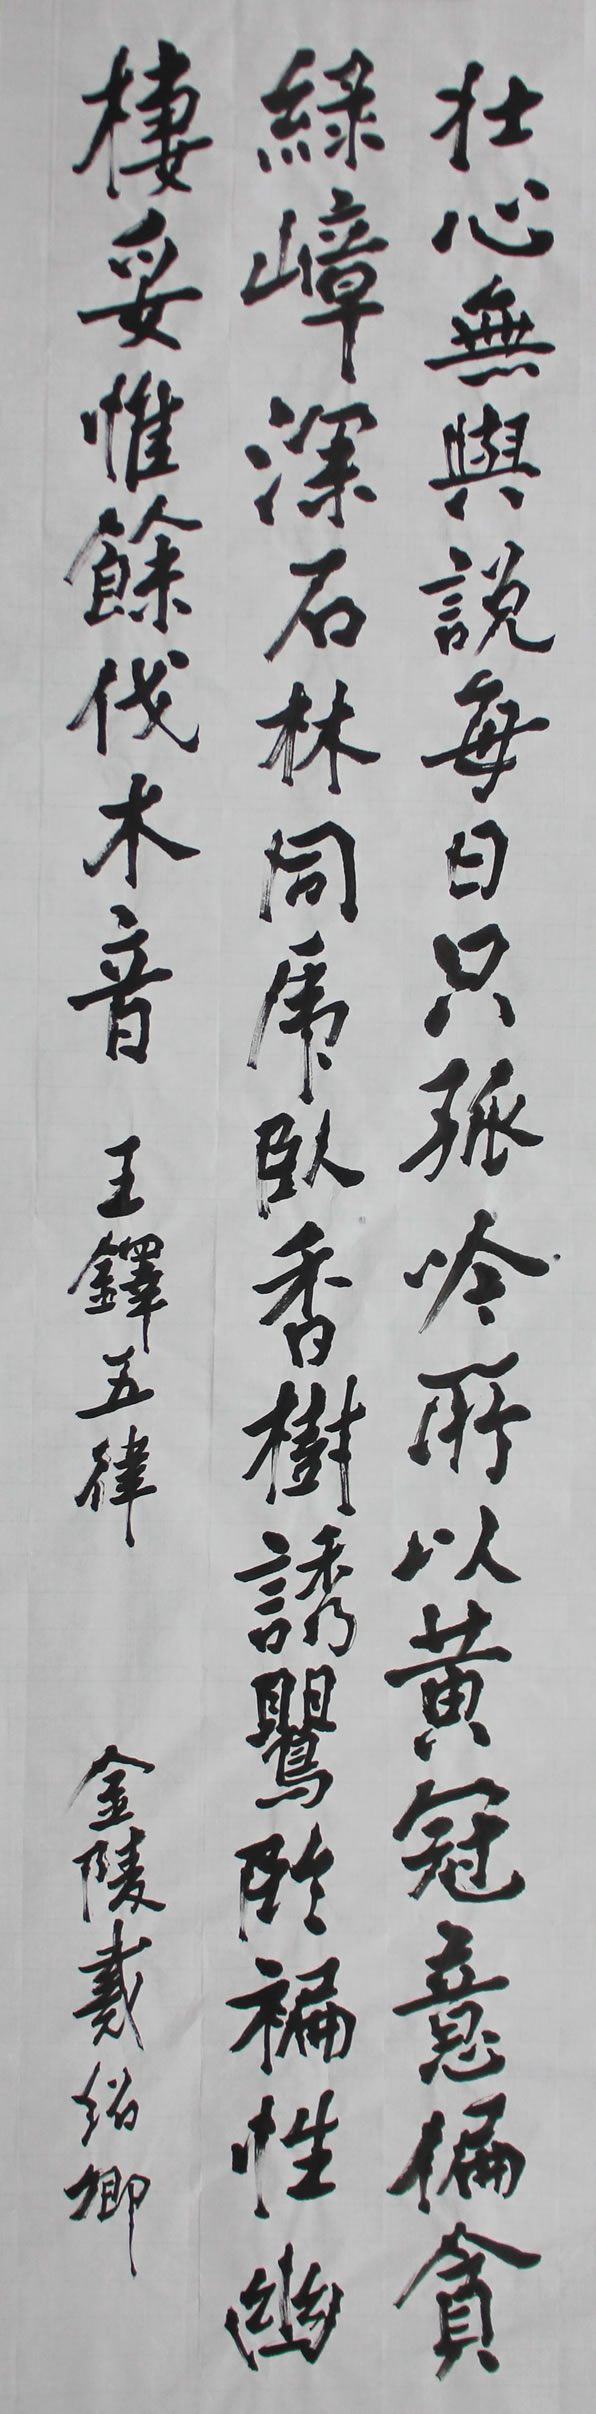 壯心無與說每日只孤吟所以黃冠意偏貪
綠嶂深石林同虎臥香樹誘鸎臨褊性幽
棲妥惟餘伐木音 王鐸五律 金陵戴紹卿